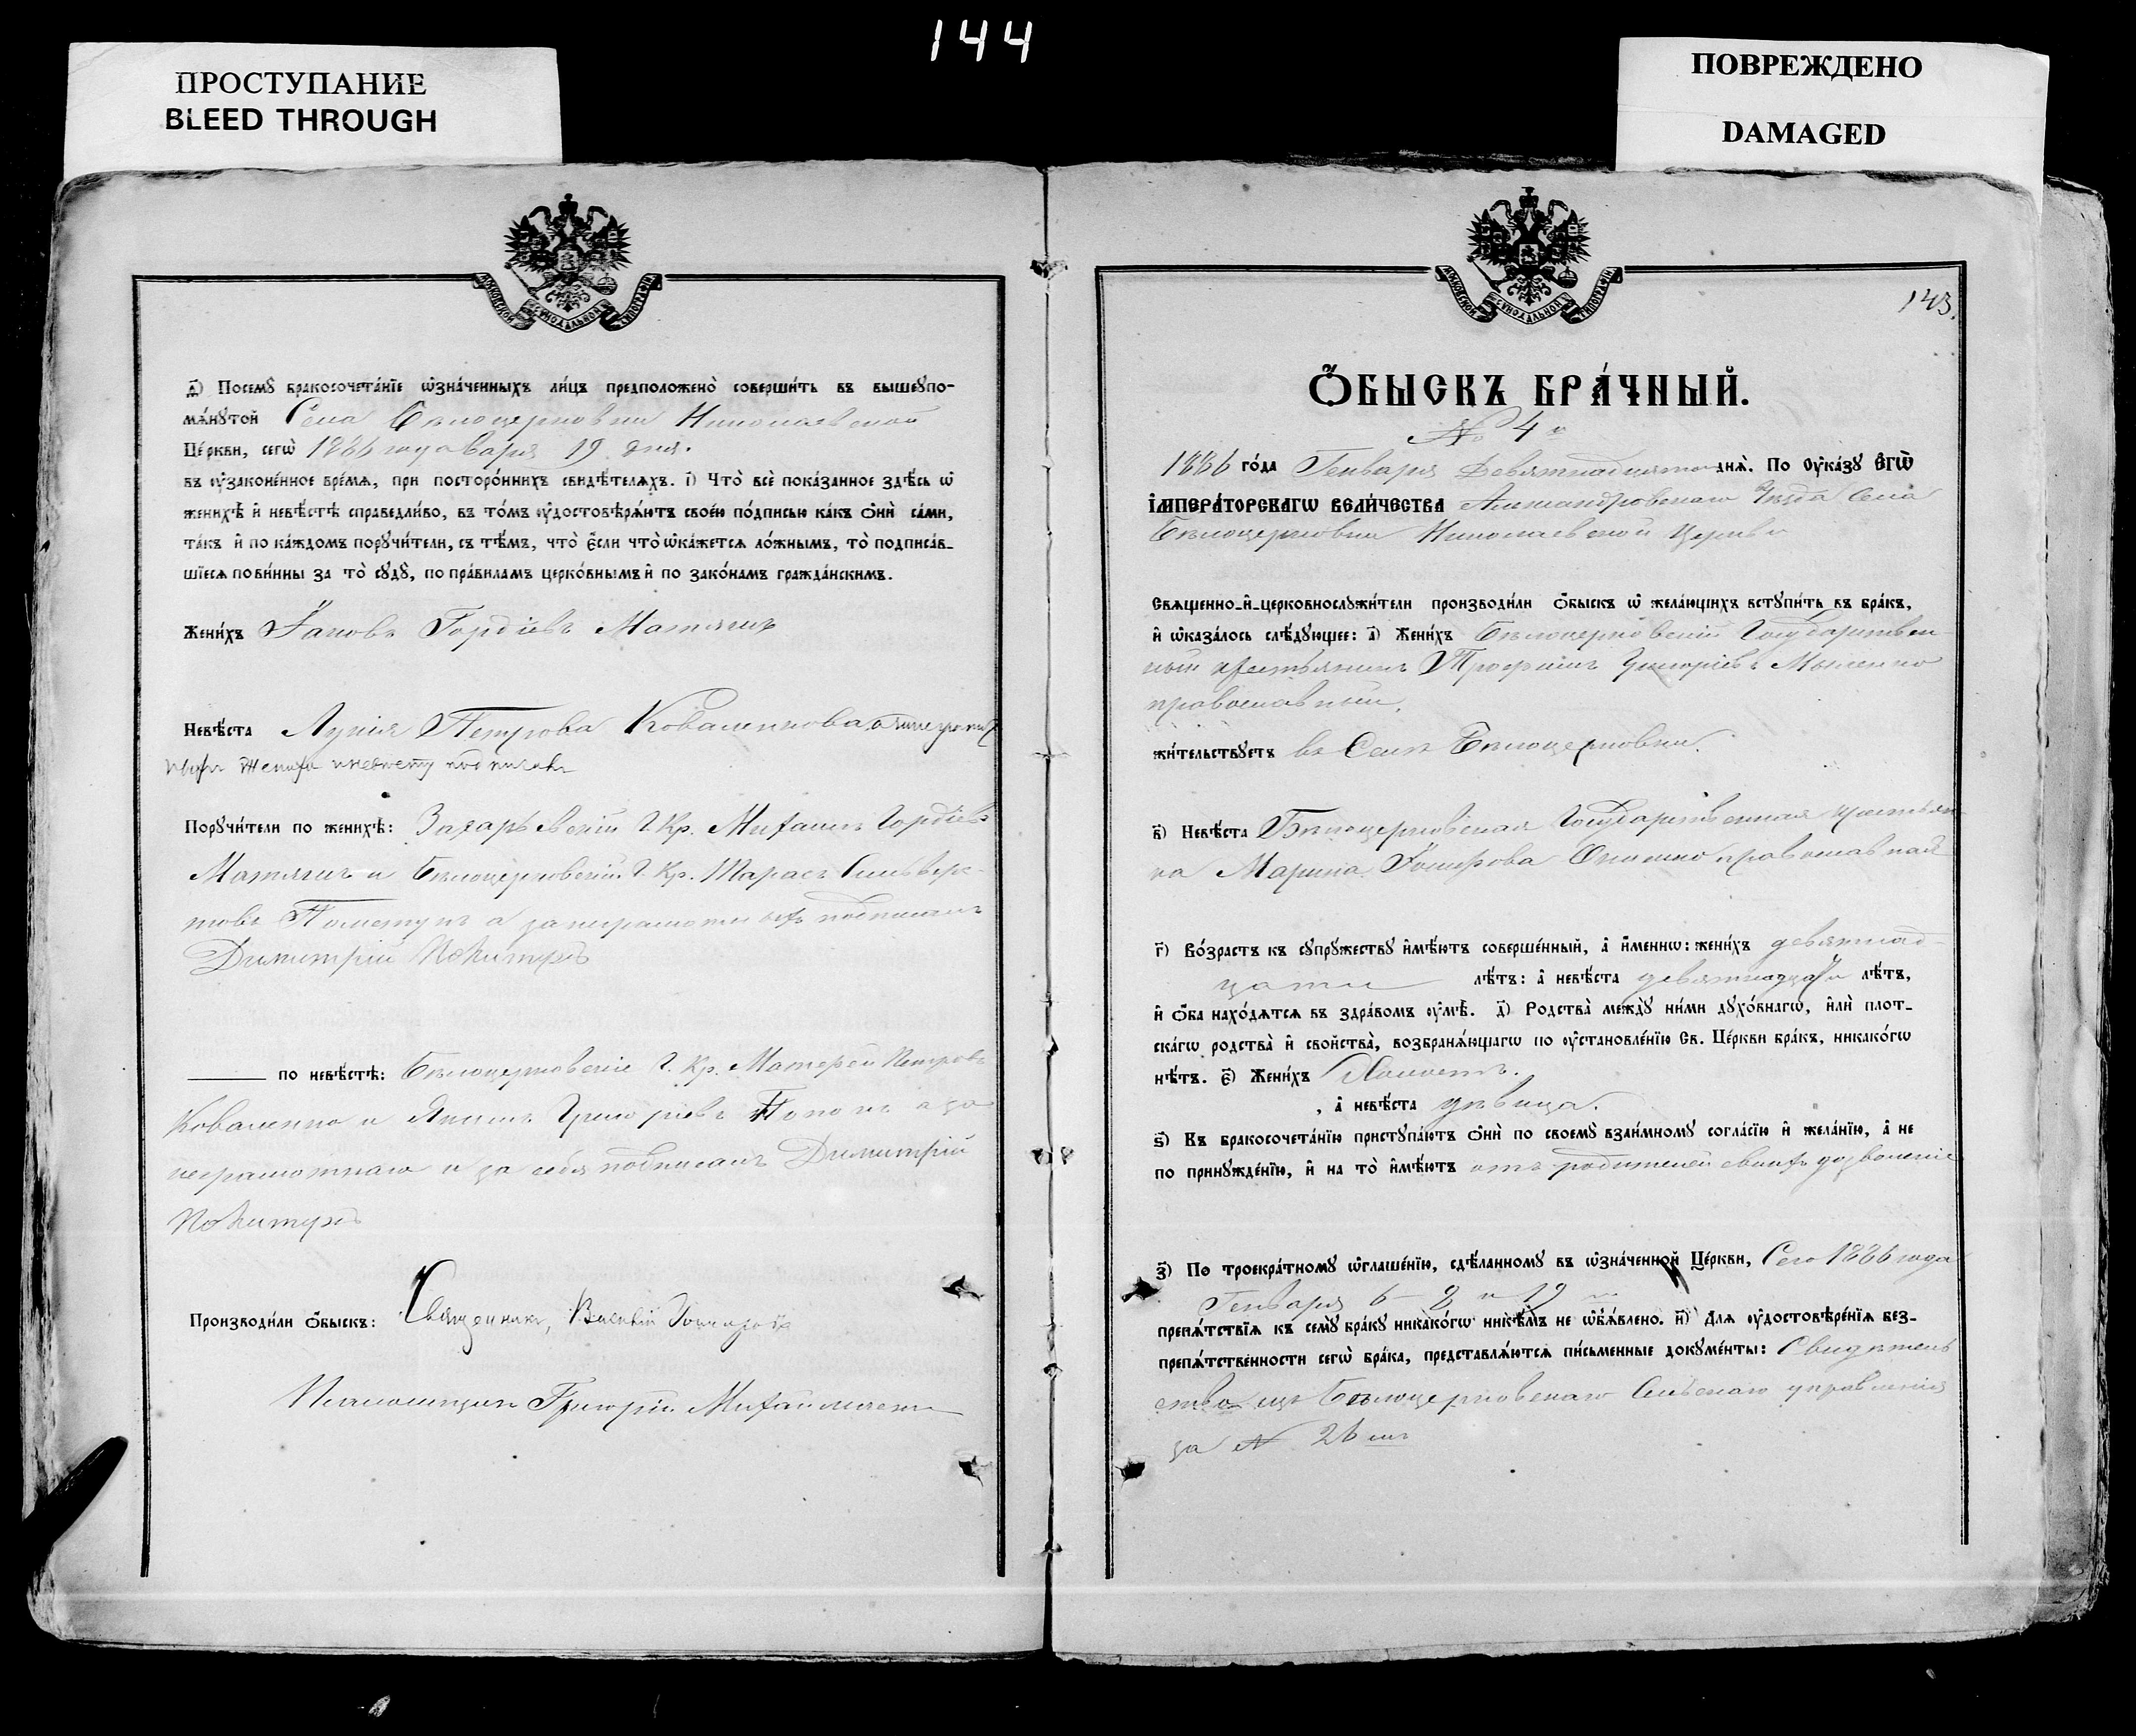 144
ПРОСТУПАНИЕ
BLEED THROUGH
ПОВРЕЖДЕНО
DAMAGED
МОСКОВСКОЙ СѴНОДАЛЬНОЙ ТИПОГРАФІИ
ѳ҃) Посемꙋ бракосочета́нїе ѡ҆зна́ченныхъ ли́цъ предположено̀ соверши́ть въ вышеꙋпо-
мѧ́нꙋтой Села Бѣлоцерковки Николаевской
Це́ркви, сегѡ̀ 1886 года 19 дня.
въ ᲂу҆зако́ненное вре́мѧ, при посторо́ннихъ свидѣ́телѧхъ. і҃) Что̀ всѐ пока́занное здѣ́сь ѡ҆
женихѣ̀ и҆ невѣ́стѣ справедли́во, въ то́мъ ᲂу҆достовѣрѧ́ютъ свое́ю по́дписью ка́къ ѻ҆нѝ са́ми,
та́къ и҆ по ка́ждомъ порꙋчи́тели, съ тѣ́мъ, что̀ є҆́сли что̀ ѡ҆ка́жетсѧ ло́жнымъ, то̀ подписа́в-
шїесѧ пови́нны за то̀ сꙋдꙋ̀, по пра́виламъ церко́внымъ и҆ по зако́намъ гражда́нскимъ.
Жени́хъ Іаковъ Гордіевъ Матягинъ
Невѣ́ста Лукія Петрова Коваленкова, а
жениха и невесту
Порꙋчи́тели по женихѣ̀: Захарьевскій Г. Кр. Михаилъ Гордіевъ
Матягинъ и Бѣлоцерковскій Г. Кр. Тарасъ Сильвес-
тровъ а за неграмотныхъ подписалъ
Димитрій
по невѣ́стѣ: Бѣлоцерковскіе Г. Кр. Матфей Петровъ
Коваленко и Якимъ Григоріевъ а за
неграмотнаго и за себя подписалъ Димитрій
Производи́ли ѻ҆́быскъ: Священникъ, Василій
Псаломщикъ Григорій Михайличенко
МОСКОВСКОЙ СѴНОДАЛЬНОЙ ТИПОГРАФІИ
143.
Ѻ҆́БЫСКЪ БРА́ЧНЫЙ.
№ 4й
1886 го́да Генваря Девятнадцатого днѧ̀. По ᲂу҆ка́зꙋ Є҆гѡ̀
І҆МПЕРА́ТОРСКАГѠ ВЕЛИ́ЧЕСТВА Александровскаго Уѣзда Села
Бѣлоцерковки Николаевской Церкви
Свѧщенно-и҆-церковнослꙋжи́тели производи́ли ѻ҆́быскъ ѡ҆ жела́ющихъ встꙋпи́ть въ бра́къ,
и҆ ѡ҆каза́лось слѣ́дꙋющее: а҃) Жени́хъ Бѣлоцерковскій Государствен-
ный крестьянинъ Трофимъ Григоріевъ
православный.
жи́тельствꙋетъ въ Селѣ Бѣлоцерковки.
в҃) Невѣ́ста Бѣлоцерковская Государственная крестьян-
ка Марина православная
г҃) Во́зрастъ къ сꙋпрꙋ́жествꙋ и҆мѣ́ютъ соверше́нный, а҆ и҆́меннѡ: жени́хъ девятнад-
цати лѣ́тъ: а҆ невѣ́ста девятнадцати лѣ́тъ,
и҆ ѻ҆́ба нахо́дѧтсѧ въ здра́вомъ ᲂу҆мѣ̀. д҃) Родства̀ междꙋ̀ ни́ми дꙋхо́внагѡ, и҆лѝ плот-
ска́гѡ родства̀ и҆ сво́йства, возбранѧ́ющагѡ по ᲂу҆становле́нїю Св. Це́ркви бра́къ, никако́гѡ
нѣ́тъ. є҃) Жени́хъ Холостъ.
, а҆ невѣ́ста дѣвица.
ѕ҃) Къ бракосочета́нїю пристꙋпа́ютъ ѻ҆нѝ по своемꙋ̀ взаи́мномꙋ согла́сїю и҆ жела́нїю, а҆ не
по принꙋжде́нїю, и҆ на то̀ и҆мѣ́ютъ отъ родителей своихъ дозволеніе
з҃) По троекра́тномꙋ ѡ҆глаше́нїю, сдѣ́ланномꙋ въ ѡ҆зна́ченной Це́ркви, Сего 1886 года
Генваря 6 – 8 и 12
препѧ́тствїѧ къ семꙋ̀ бра́кꙋ никако́гѡ никѣ́мъ не ѡ҆б̾ѧ́влено. и҃) Длѧ ᲂу҆достовѣре́нїѧ без-
препѧ́тственности сегѡ̀ бра́ка, представлѧ́ютсѧ пи́сьменные докꙋме́нты: Свидѣтель
ство изъ Бѣлоцерковскаго Сельскаго управленія
за № 26